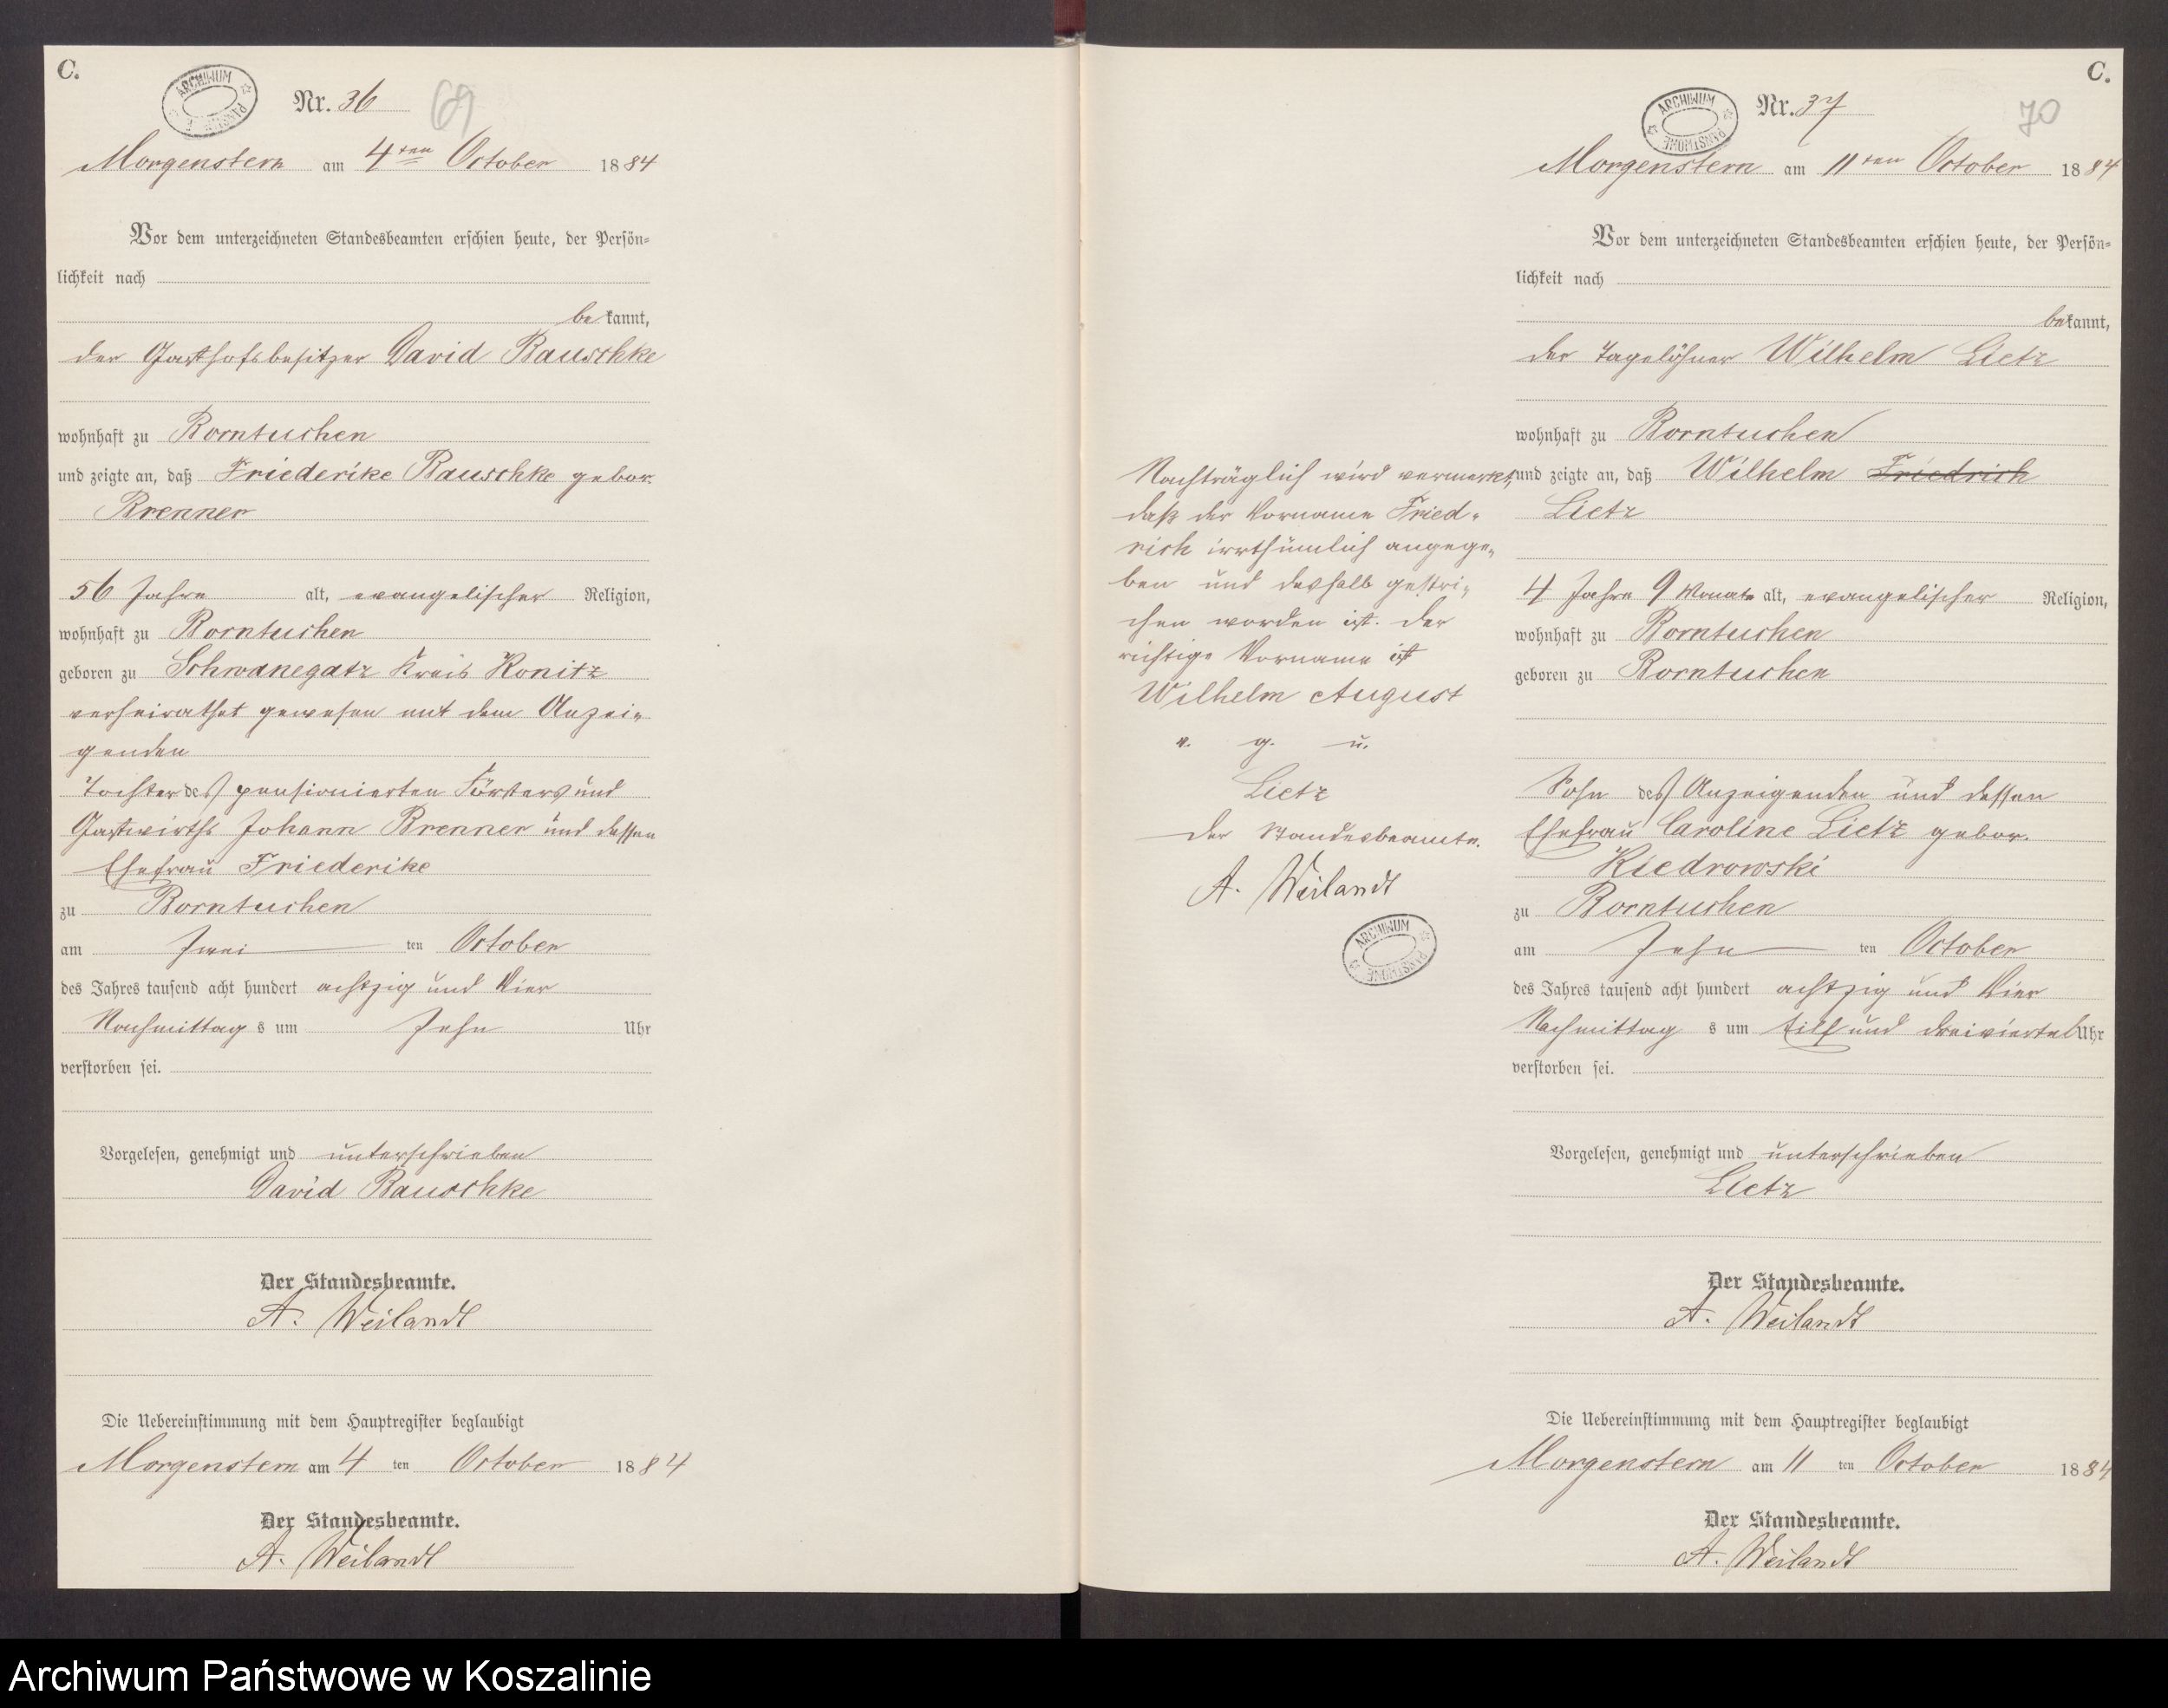 C.
ARCHIWUM PAŃSTWOWE
Nr. 36
69
Morgenstern am 4ten October 1884
Vor dem unterzeichneten Standesbeamten erschien heute, der Persön=
lichkeit nach
bekannt,
der Gasthofsbesitzer David Bauschke
wohnhaft zu Borntuchen
und zeigte an, daß Friederike Bauschke gebor.
Brenner
56 Jahre alt, evangelischer Religion,
wohnhaft zu Borntuchen
geboren zu Schwanegatz Kreis Konitz
verheirathet gewesen mit dem Anzei=
genden
Tochter des pensionierten Försters und
Gastwirths Johann Brenner und dessen
Ehefrau Friederike
zu Borntuchen
am Zwei ten October
des Jahres tausend acht hundert achtzig und Vier
Nachmittag s um Zehn Uhr
verstorben sei.
Vorgelesen, genehmigt und unterschrieben
David Bauschke
Der Standesbeamte.
A. Weilandt
Die Uebereinstimmung mit dem Hauptregister beglaubigt
Morgenstern am 4 ten October 1884
Der Standesbeamte.
A. Weilandt
C.
ARCHIWUM PAŃSTWOWE
Nr. 37
70
Morgenstern am 11ten October 1884
Vor dem unterzeichneten Standesbeamten erschien heute, der Persön=
lichkeit nach
bekannt,
der Tagelöhner Wilhelm Lietz
wohnhaft zu Borntuchen
und zeigte an, daß Wilhelm Friedrich
Lietz
4 Jahre 9 Monate alt, evangelischer Religion,
wohnhaft zu Borntuchen
geboren zu Borntuchen
Sohn des Anzeigenden und dessen
Ehefrau Caroline Lietz gebor.
Kiedrowski
zu Borntuchen
am Zehn ten October
des Jahres tausend acht hundert achtzig und Vier
Nachmittag s um Eilf und dreiviertel Uhr
verstorben sei.
Vorgelesen, genehmigt und unterschrieben
Lietz
Der Standesbeamte.
A. Weilandt
Die Uebereinstimmung mit dem Hauptregister beglaubigt
Morgenstern am 11 ten October 1884
Der Standesbeamte.
A. Weilandt
Nachträglich wird vermerkt,
daß der Vorname Fried=
rich irrthümlich angege=
ben und deshalb gestri=
chen worden ist. Der
richtige Vorname ist
Wilhelm August
v. g. u.
Lietz
Der Standesbeamte.
A. Weilandt
ARCHIWUM PAŃSTWOWE
Archiwum Państwowe w Koszalinie